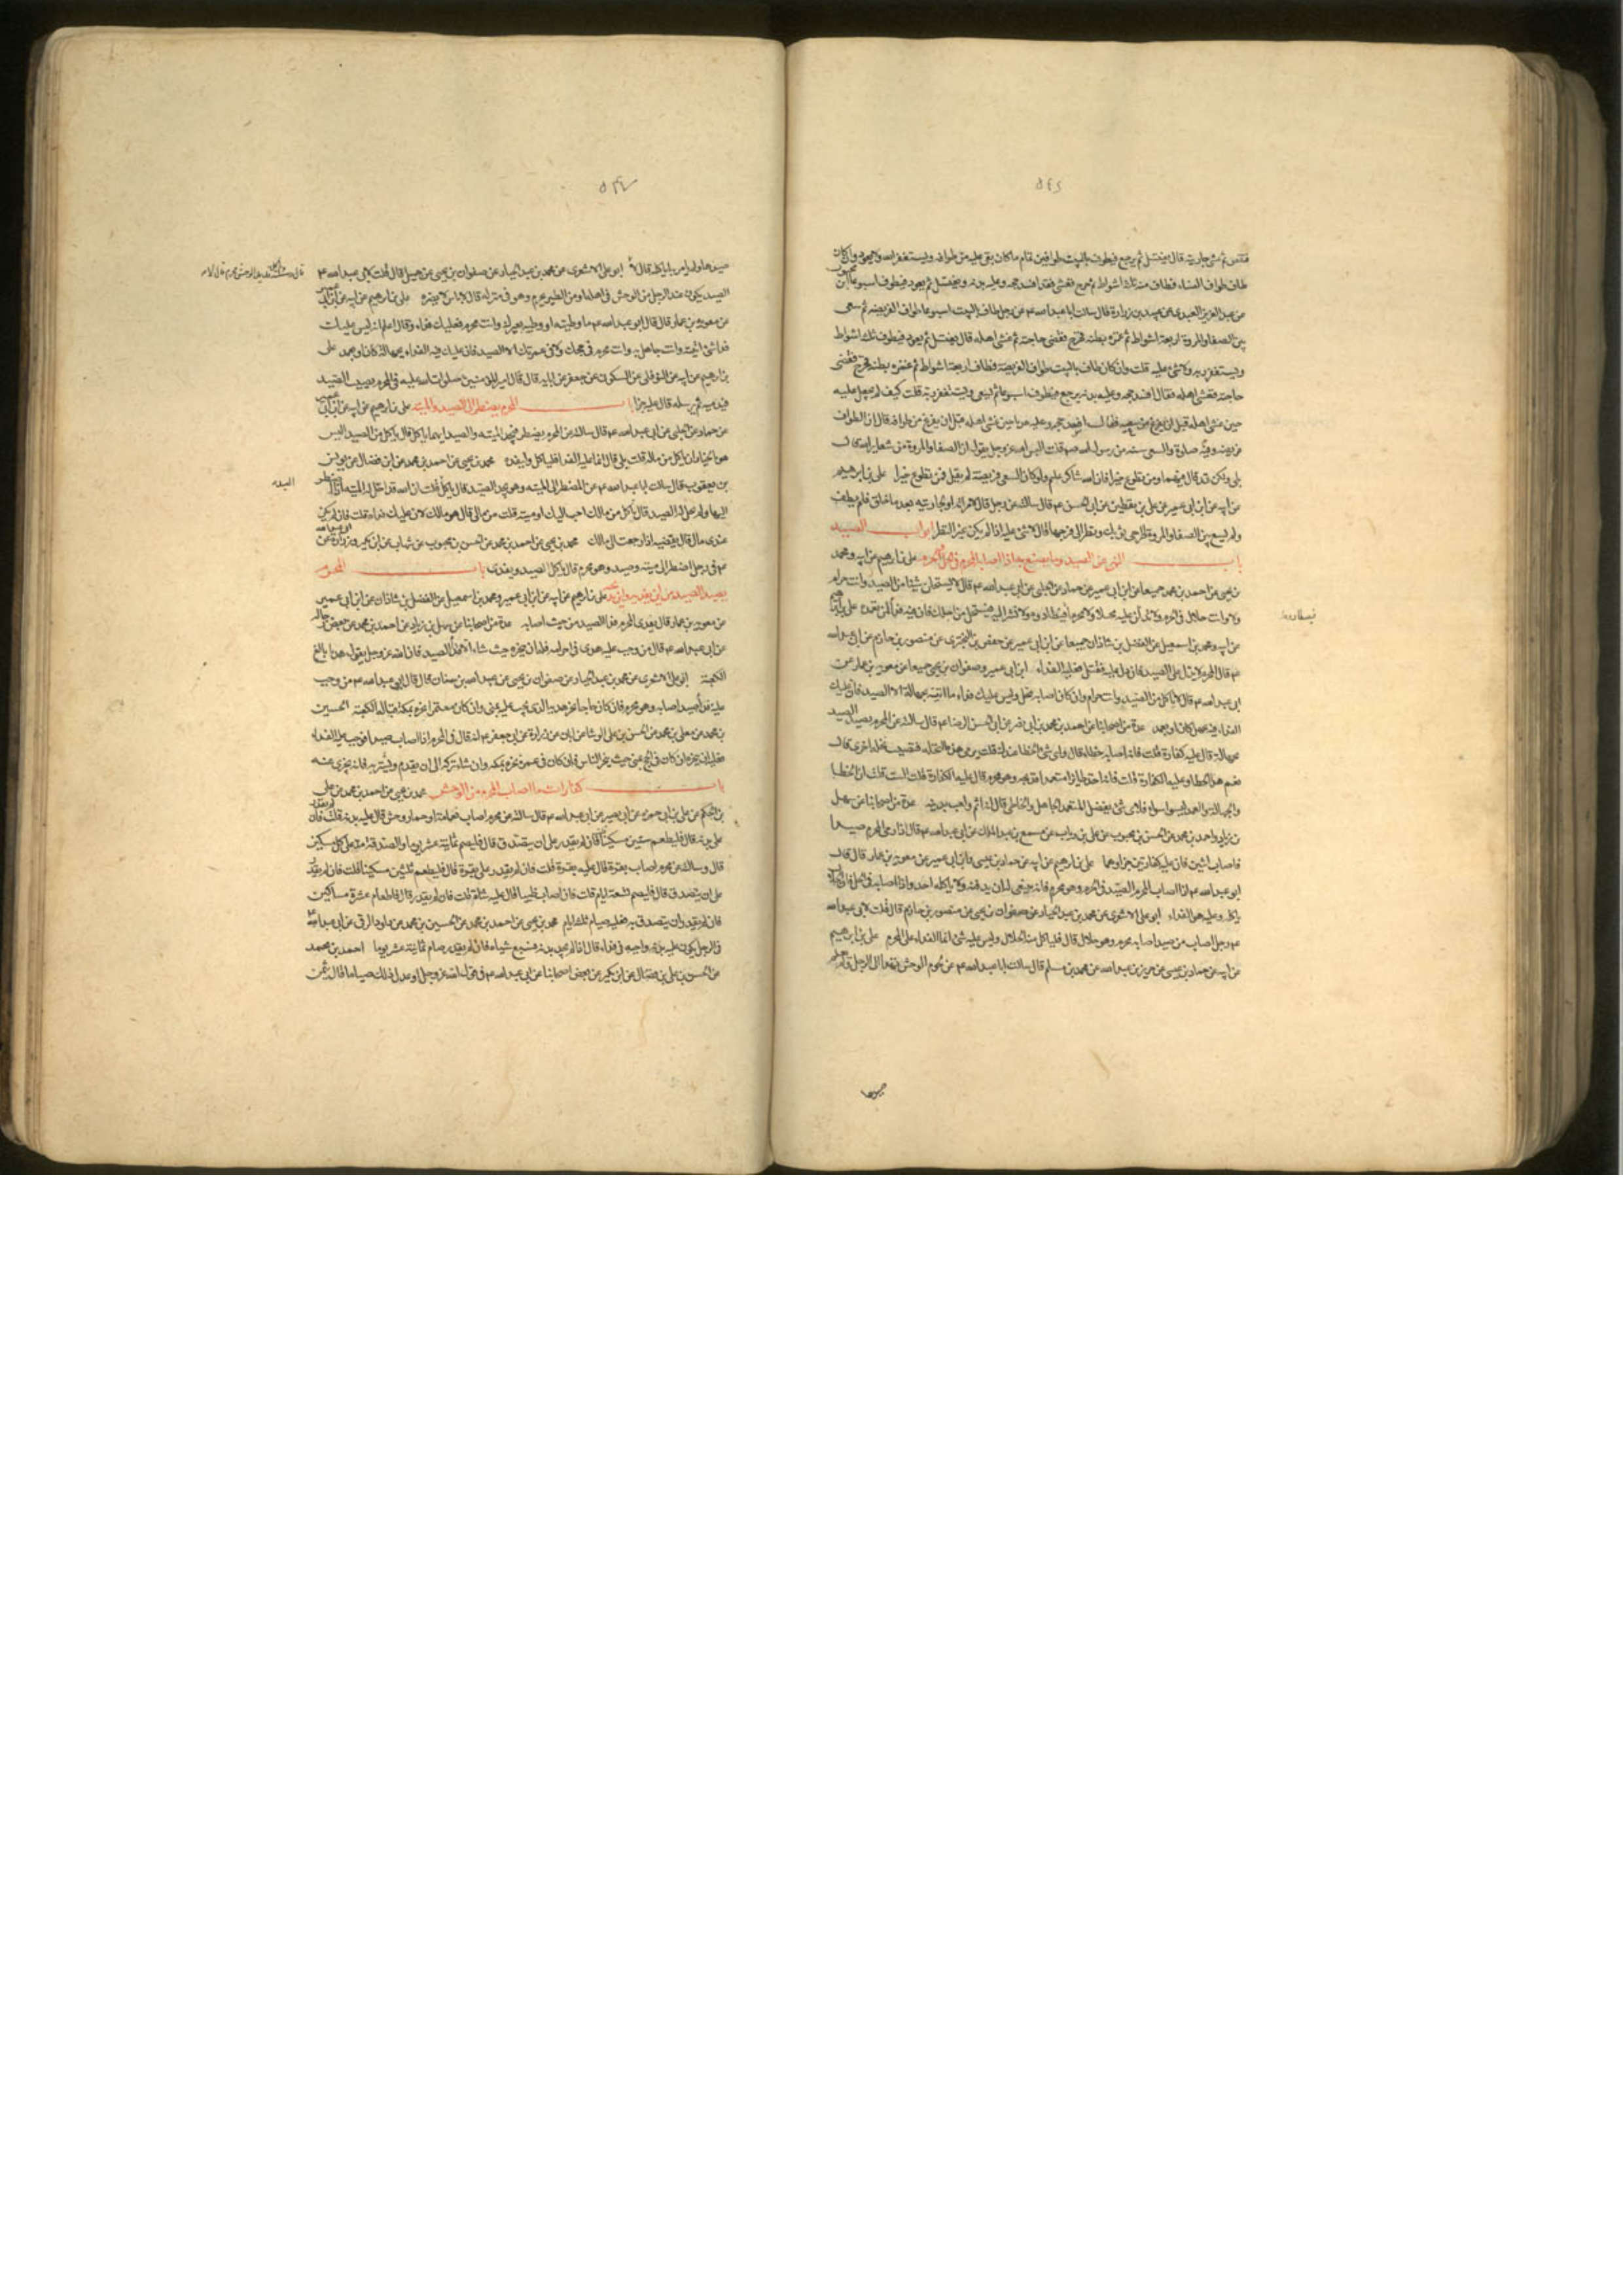 ٥٤٦
فنقض ثم غشى جاريته قال يغتسل ثم يرجع فيطوف بالبيت طوافين تمام ما كان بقى عليه من طوافه ويستغفر الله ولا يعود وان كان
طاف طواف النساء فطاف منه ثلثة اشواط ثم خرج فغشى فقد افسد حجه وعليه بدنة ويغتسل ثم يعود فيطوف اسبوعا
عن عبد العزيز العبدى عن عبيد بن زرارة قال سالت ابا عبد الله ع عن رجل طاف بالبيت اسبوعا طواف الفريضة ثم سعى
بين الصفا والمروة اربعة اشواط ثم غمزه بطنه فخرج فقضى حاجته ثم غشى اهله قال يغتسل ثم يعود فيطوف ثلثة اشواط
ويستغفر ربه ولا شئ عليه قلت وان كان طاف بالبيت طواف الفريضة فطاف اربعة اشواط ثم غمزه بطنه فخرج فقضى
حاجته فغشى اهله فقال افسد حجه وعليه بدنة ثم يرجع فيطوف اسبوعا ثم يسعى ويستغفر ربه قلت كيف لم تجعل عليه
حين غشى اهله قبل ان يفرغ من سعيه كما جعلت عليه هديا حين غشى اهله قبل ان يفرغ من طوافه قال ان الطواف
فريضة وفيه صلوة والسعى سنة من رسول الله ص قلت اليس الله عز وجل يقول ان الصفا والمروة من شعاير الله قال
بلى ولكن قد قال فيهما ومن تطوع خيرا فان الله شاكر عليم ولو كان السعى فريضة لم يقل فمن تطوع خيرا على بن ابرهيم
عن ابيه عن ابن ابى عمير عن على بن يقطين عن ابى الحسن ع قال سالته عن رجل قال لامراته او لجاريته بعد ما حلق فلم يطف
ولم يسع بين الصفا والمروة اطرحى ثوبك ونظر الى فرجها قال لا شئ عليه اذا لم يكن غير النظر ابواب الصيد
باب النهى عن الصيد وما يصنع به اذا اصابه المحرم فى الحل والحرم على بن ابرهيم عن ابيه ومحمد
بن يحيى عن احمد بن محمد جميعا عن ابن ابى عمير عن حماد عن الحلبى عن ابى عبد الله ع قال لا تستحلن شيئا من الصيد وانت حرام
ولا وانت حلال فى الحرم ولا تدلن عليه محلا ولا محرما فيصطادوه ولا تشر اليه فيستحل من اجلك فان فيه فداء لمن تعمده على بن ابرهيم
عن ابيه ومحمد بن اسمعيل عن الفضل بن شاذان جميعا عن ابن ابى عمير عن حفص بن البخترى عن منصور بن حازم عن ابى عبد الله
ع قال المحرم لا يدل على الصيد فان دل عليه فقتل فعليه الفداء ابن ابى عمير وصفوان بن يحيى جميعا عن معوية بن عمار عن
ابى عبد الله ع قال لا تاكل من الصيد وانت حرام وان كان اصابه محل وليس عليك فداء ما اتيته بجهالة الا الصيد فان عليك
الفداء فيه بجهل كان او بعمد عدة من اصحابنا عن احمد بن محمد بن ابى نصر عن ابى الحسن الرضا ع قال سالته عن المحرم يصيد الصيد
بجهالة قال عليه كفارة قلت فانه اصابه خطاء قال واى شئ الخطا عندك قلت يرمى هذه النخلة فتصيب نخلة اخرى قال
نعم هذا الخطا وعليه الكفارة قلت فانه اخذ طايرا متعمدا فذبحه وهو محرم قال عليه الكفارة قلت الست قلت ان الخطا
والجهالة والعمد ليسوا سواء فلاى شئ يفضل المتعمد الجاهل والخاطى قال انه اثم ولعب بدينه عدة من اصحابنا عن سهل
بن زياد واحمد بن محمد عن الحسن بن محبوب عن على بن رياب عن مسمع بن عبد الملك عن ابى عبد الله ع قال اذا رمى المحرم صيدا
فاصاب اثنين فان عليه كفارتين جزاوهما على بن ابرهيم عن ابيه عن حماد بن عيسى وابن ابى عمير عن معوية بن عمار قال قال
ابو عبد الله ع اذا اصاب المحرم الصيد فى الحرم وهو محرم فانه ينبغى له ان يدفنه ولا ياكله احد واذا اصابه فى الحل فان الحلال
ياكله وعليه هو الفداء ابو على الاشعرى عن محمد بن عبد الجبار عن صفوان بن يحيى عن منصور بن حازم قال قلت لابى عبد الله
ع رجل اصاب من صيد اصابه محرم وهو حلال قال فلياكل منه الحلال وليس عليه شئ انما الفداء على المحرم على بن ابرهيم
عن ابيه عن حماد بن عيسى عن حريز بن عبد الله عن محمد بن مسلم قال سالت ابا عبد الله ع عن لحوم الوحش تهدى الى الرجل ولم يعلم
صيدها
٥٤٧
صيدها ولم يامر به اياكله قال لا ابو على الاشعرى عن محمد بن عبد الجبار عن صفوان بن يحيى عن جميل قال قلت لابى عبد الله ع
الصيد يكون عند الرجل من الوحش فى اهله او من الطير يحرم وهو فى منزله قال لا باس لا يضره على بن ابرهيم عن ابيه عن ابن ابى عمير
عن معوية بن عمار قال قال ابو عبد الله ع ما وطئته او وطئه بعيرك وانت محرم فعليك فداؤه وقال اعلم انه ليس عليك
فداء شئ اتيته وانت جاهل به وانت محرم فى حجك ولا فى عمرتك الا الصيد فان عليك فيه الفداء بجهالة كان او بعمد على
بن ابرهيم عن ابيه عن النوفلى عن السكونى عن جعفر عن ابايه قال قال امير المؤمنين صلوات الله عليه فى المحرم يصيب الصيد
فيدميه ثم يرسله قال عليه جزاؤه باب المحرم يضطر الى الصيد والميتة على بن ابرهيم عن ابيه عن ابن ابى عمير
عن حماد عن الحلبى عن ابى عبد الله ع قال سالته عن المحرم يضطر فيجد الميتة والصيد ايهما ياكل قال ياكل من الصيد اليس
هو بالخيار ان ياكل من ماله قلت بلى قال انما عليه الفداء فلياكل وليفده محمد بن يحيى عن احمد بن محمد عن ابن فضال عن يونس
بن يعقوب قال سالت ابا عبد الله ع عن المضطر الى الميتة وهو يجد الصيد قال ياكل قلت ان الله قد احل له الميتة اذا اضطر
اليها ولم يحل له الصيد قال تاكل من مالك احب اليك او ميتة قلت من مالى قال هو مالك لان عليك فداءه قلت فان لم يكن
عندى مال قال تقضيه اذا رجعت الى مالك محمد بن يحيى عن احمد بن محمد عن الحسن بن محبوب عن شهاب عن ابن بكير وزرارة عن ابى عبد الله
ع فى رجل اضطر الى ميتة وصيد وهو محرم قال ياكل الصيد ويفدى باب المحرم
يصيد الصيد من اين يفديه واين يذبحه على بن ابرهيم عن ابيه عن ابن ابى عمير ومحمد بن اسمعيل عن الفضل بن شاذان عن ابن ابى عمير
عن معوية بن عمار قال يفدى المحرم فداء الصيد من حيث اصابه عدة من اصحابنا عن سهل بن زياد عن احمد بن محمد عن بعض رجاله
عن ابى عبد الله ع قال من وجب عليه هدى فى احرامه فله ان ينحره حيث شاء الا فداء الصيد فان الله عز وجل يقول هديا بالغ
الكعبة ابو على الاشعرى عن محمد بن عبد الجبار عن صفوان بن يحيى عن عبد الله بن سنان قال قال ابو عبد الله ع من وجب
عليه فداء صيد اصابه وهو محرم فان كان حاجا نحر هديه الذى يجب عليه بمنى وان كان معتمرا نحره بمكة قبالة الكعبة الحسين
بن محمد عن معلى بن محمد عن الحسن بن على الوشا عن ابان عن زرارة عن ابى جعفر ع انه قال فى المحرم اذا اصاب صيدا فوجب عليه الفداء
فعليه ان ينحره ان كان فى الحج بمنى حيث ينحر الناس فان كان فى عمرة نحره بمكة وان شاء تركه الى ان يقدم ويشتريه فانه يجزى عنه
باب كفارات ما اصاب المحرم من الوحش محمد بن يحيى عن احمد بن محمد عن على
بن الحكم عن على بن ابى حمزة عن ابى بصير عن ابى عبد الله ع قال سالته عن محرم اصاب نعامة او حمار وحش قال عليه بدنة قلت فان لم يقدر
على بدنة قال فليطعم ستين مسكينا قلت فان لم يقدر على ان يتصدق قال فليصم ثمانية عشر يوما والصدقة مد على كل مسكين
قال وسالته عن محرم اصاب بقرة قال عليه بقرة قلت فان لم يقدر على بقرة قال فليطعم ثلثين مسكينا قلت فان لم يقدر
على ان يتصدق قال فليصم تسعة ايام قلت فان اصاب ظبيا قال عليه شاة قلت فان لم يقدر قال فاطعام عشرة مساكين
فان لم يقدر ان يتصدق به فعليه صيام ثلثة ايام محمد بن يحيى عن احمد بن محمد عن الحسين بن محمد عن داود الرقى عن ابى عبد الله ع
فى الرجل يكون عليه بدنة واجبة فى فداء قال اذا لم يجد بدنة فسبع شياه فان لم يقدر صام ثمانية عشر يوما احمد بن محمد
عن الحسن بن على بن فضال عن ابن بكير عن بعض اصحابنا عن ابى عبد الله ع فى قول الله عز وجل او عدل ذلك صياما قال يثمن